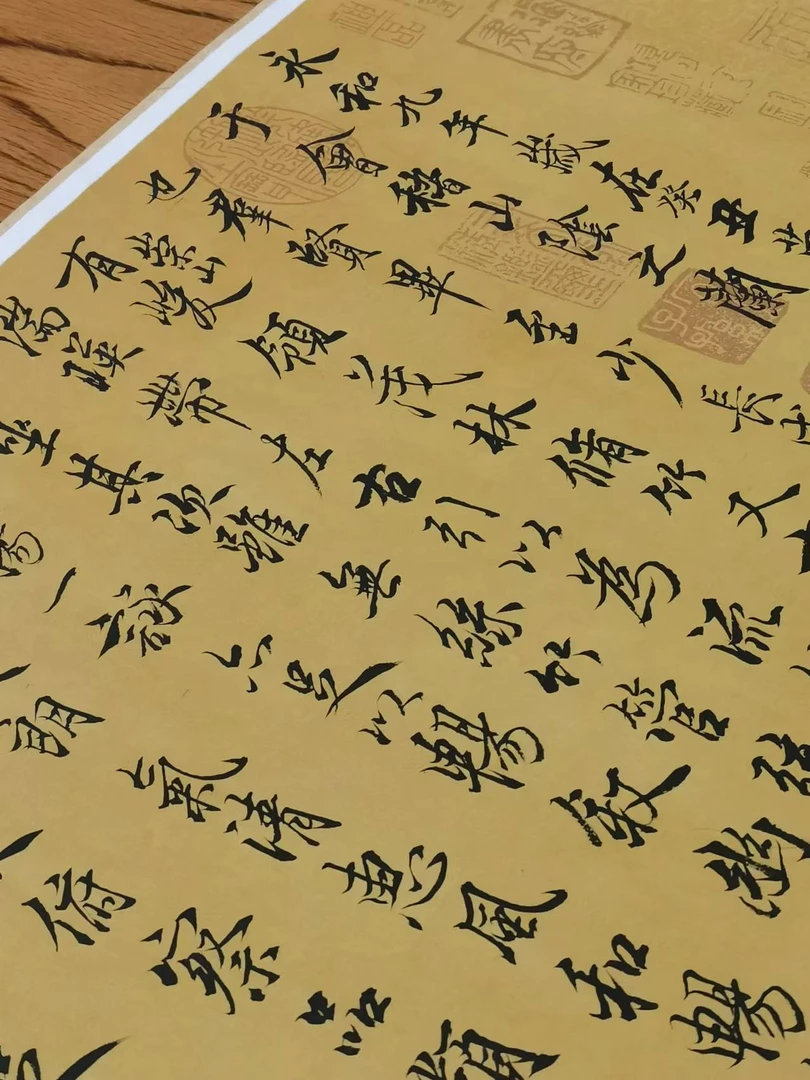 永和九年歲在癸丑
于會稽山陰之蘭
也羣賢畢至少長
有崇山峻領茂林脩竹又
湍暎帶左右引以為流
坐其次雖無絲竹管弦
觴一詠亦足以暢敘幽
朗氣清惠風和暢
俯察品類